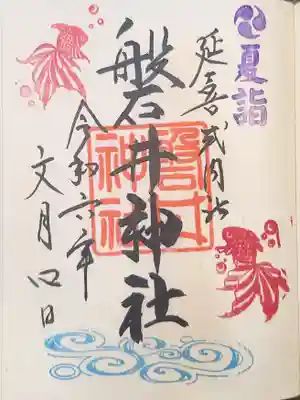 夏詣
延喜式内社
磐井神社
磐井神社
令和六年
文月四日